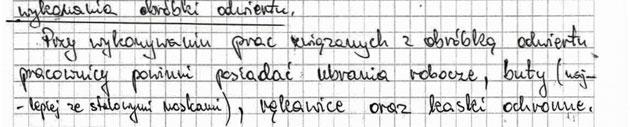 wykonania obróbki odwiertu.
Przy wykonywaniu prac związanych z obróbką odwiertu
pracownicy powinni posiadać ubrania robocze, buty (naj-
-lepiej ze stalowymi noskami), rękawice oraz kaski ochronne.